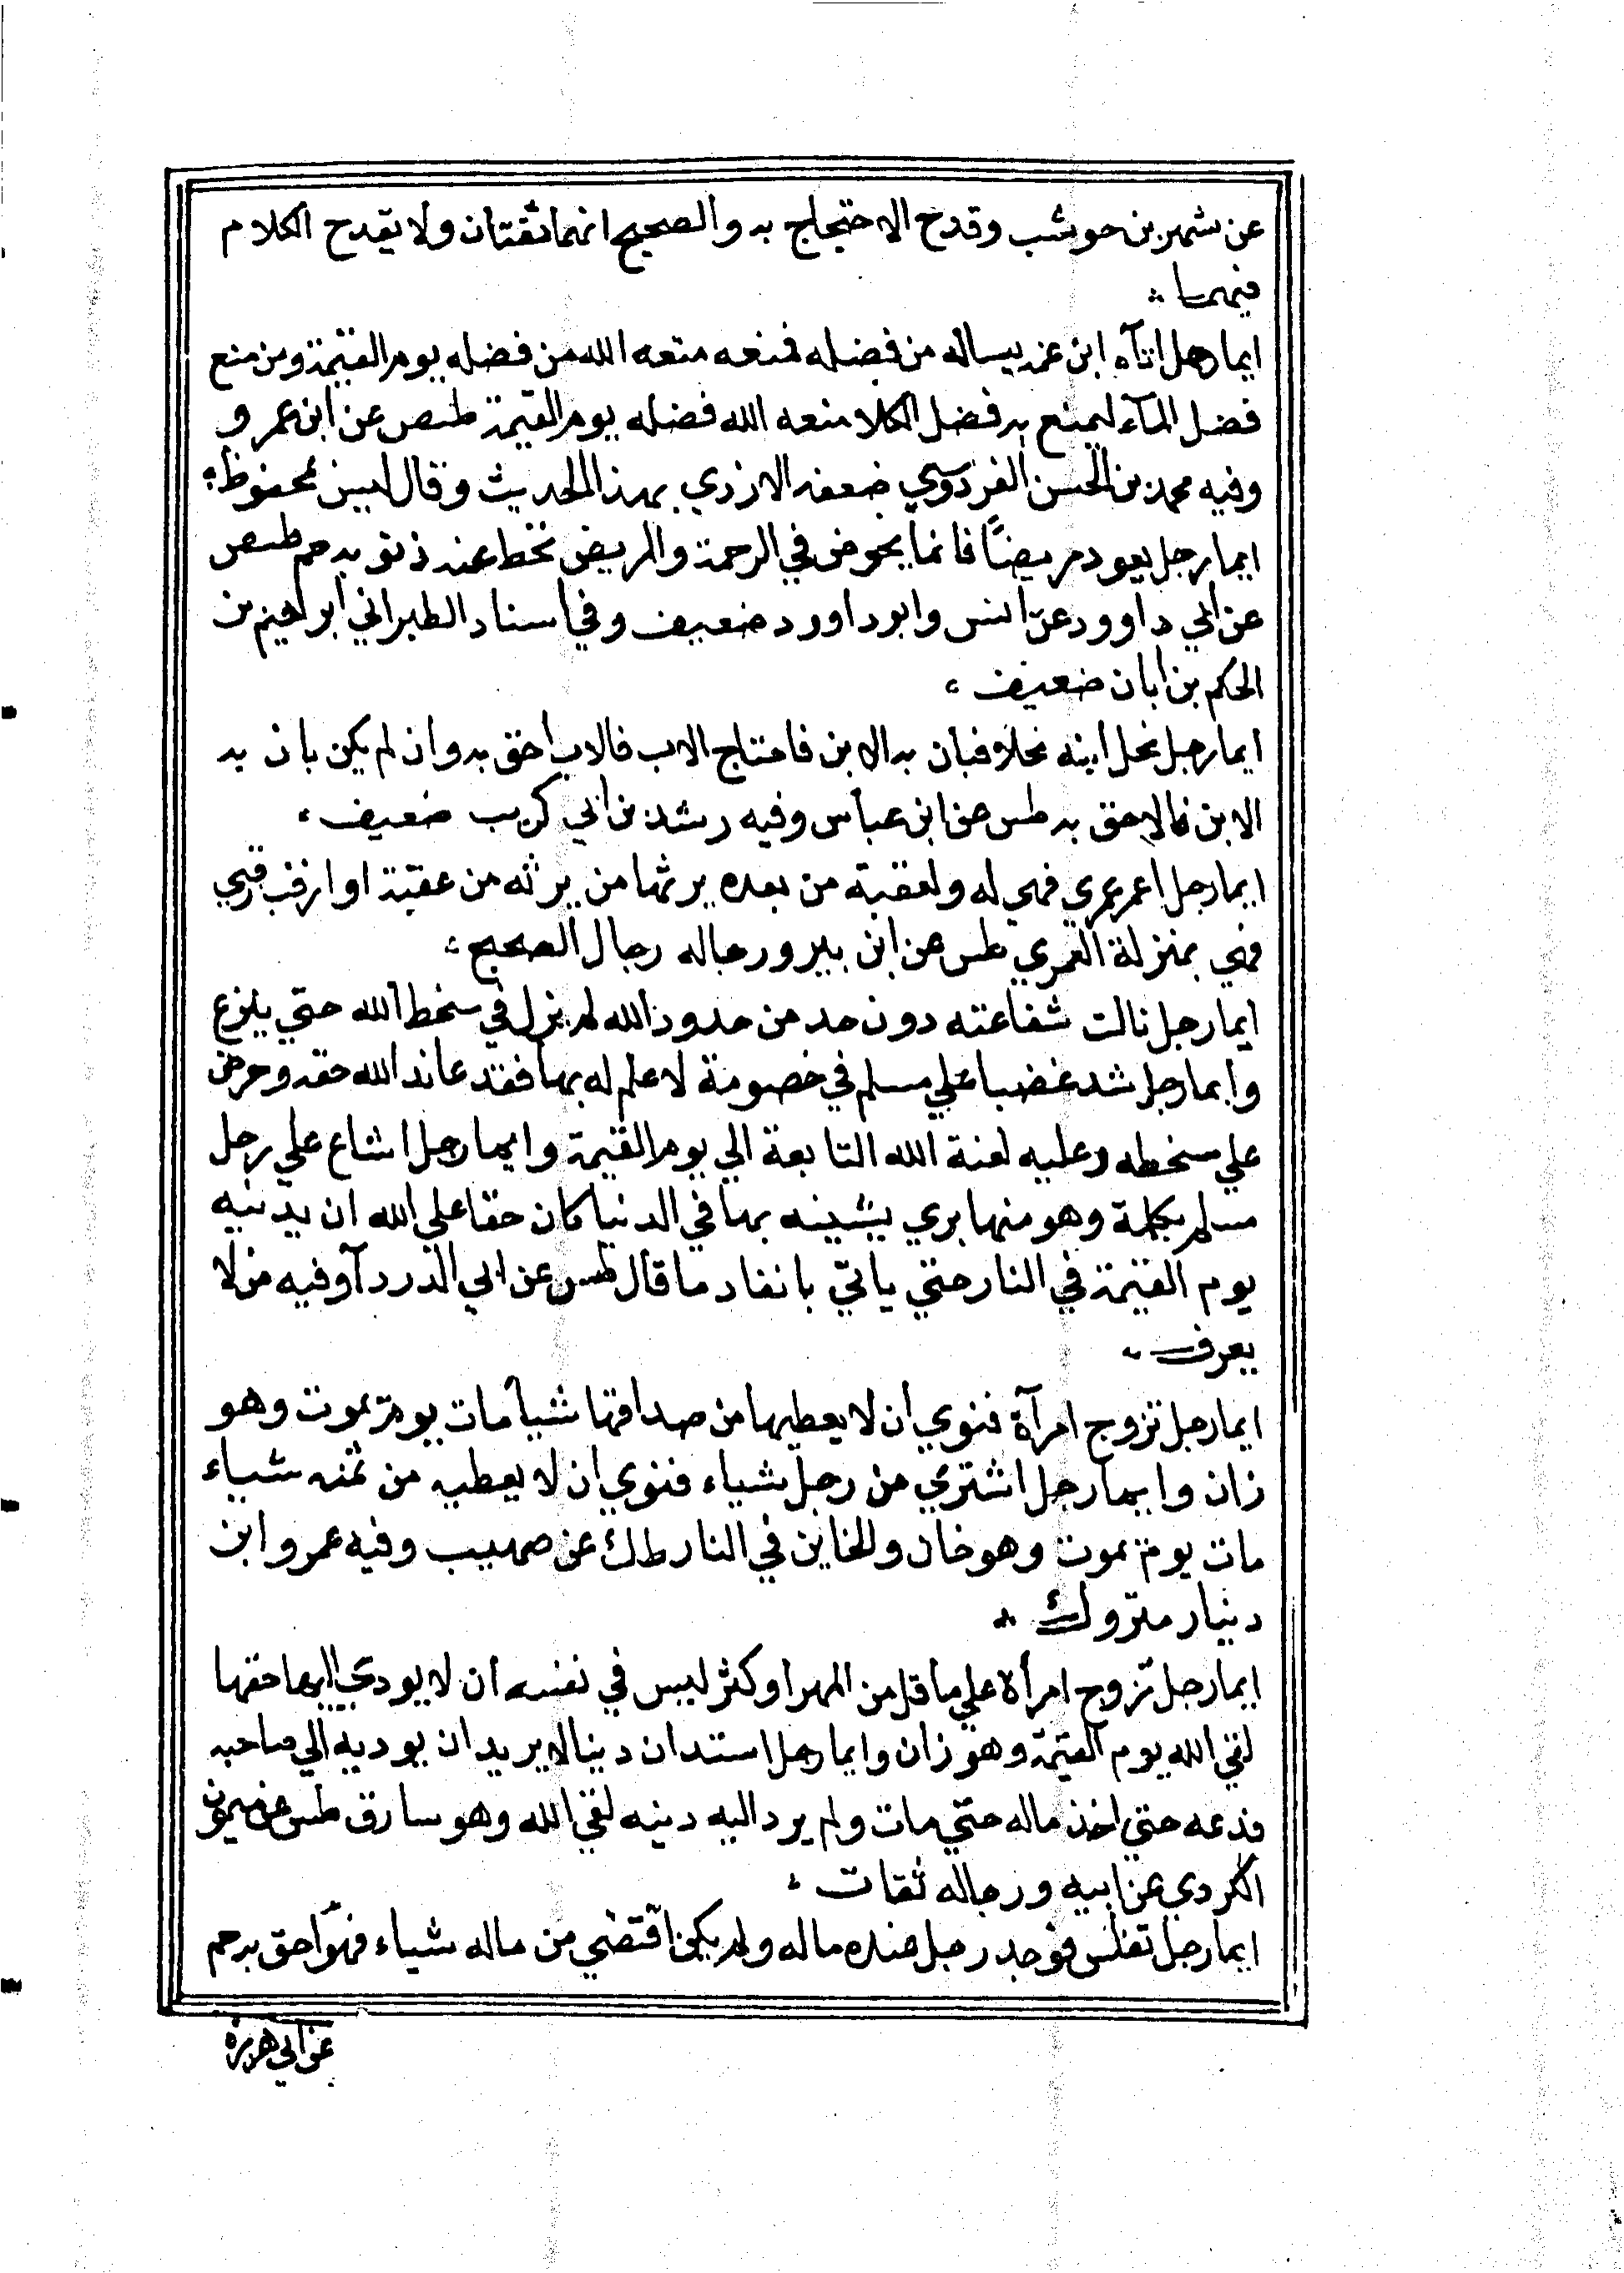 عن شهر بن حوشب وقدح الاحتجاج به والصحيح انهما ثقتان ولا يقدح الكلام
فيهما
ايما رجل اتآه ابن عمه يساله من فضله فمنعه منعه الله من فضله يوم القيمة ومن منع
فضل المآء ليمنع به فضل الكلا منعه الله فضله يوم القيمة طص عن ابن عمرو
وفيه محمد بن الحسن الفردوسي ضعفه الازدي بهذا الحديث وقال ليس بمحفوظ
ايما رجل يعود مريضًا فانما يخوض في الرحمة والمريض تحط عنه ذنوبه حم طص
عن ابي داوود عن انس وابو داورد ضعيف وفي اسناد الطبراني ابراهيم بن
الحكم بن ابان ضعيف
ايما رجل نحل ابنه نحلا فبان به الابن فاحتاج الاب فالاب احق به وان لم يكن بان به
الابن فالاحق به طس عن ابن عباس وفيه رشد بن ابي كريب ضعيف
ايما رجل اعمر عمري فهي له ولعقبة من بعده يرثها من يرثه من عقبة او ارقب رقبي
فهي بمنزلة العمري طس عن ابن بير ورجاله رجال الصحيح
ايما رجل نالت شفاعته دون حد من حدود الله لم يزل في سخط الله حتي ينزع
وايما رجل شد غضبا علي مسلم في خصومة لا علم له بها فقد عاند الله حقه وحرض
علي سخطه وعليه لعنة الله التابعة الي يوم القيمة وايما رجل اشاع علي رجل
مسلم بكلمة وهو منها بري يشينه بها في الدنيا كان حقا علي الله ان يدنيه
يوم القيمة في النار حتي ياتي بانفاد ما قال طس عن ابي الدردآ وفيه من لا
يعرف
ايما رجل تزوج امرآة فنوي ان لا يعطيها من صداقها شيا مات يوم يموت وهو
زان وايما رجل اشتري من رجل شياء فنوي ان لا يعطيه من ثمنه شياء
مات يوم يموت وهو خان والخاين في النار طك عن صهيب وفيه عمرو ابن
دينار متروك
ايما رجل تزوج امرأة علي ما قل من المهر او كثر ليس في نفسه ان لا يودي اليها حقها
لقي الله يوم القيمة وهو زان وايما رجل استدان دينا لا يريد ان يوديه الي صاحبه
خدعه حتي اخذ ماله حتي مات ولم يرد اليه دينه لقي الله وهو سارق طس عن ميمون
الكردي عن ابيه ورجاله ثقات
ايما رجل تفلس فوجد رجل عنده ماله ولم يكن اقتضي من ماله شياء فهو احق به حم
عن ابي هريرة